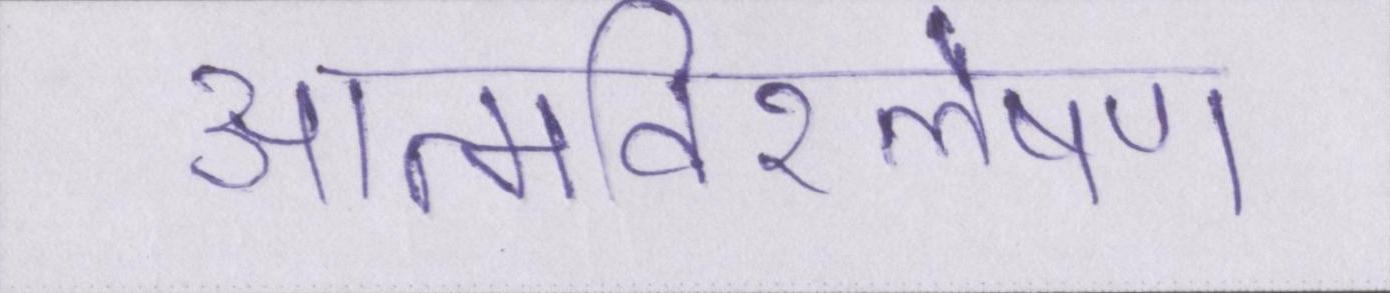 आत्मविश्लेषण